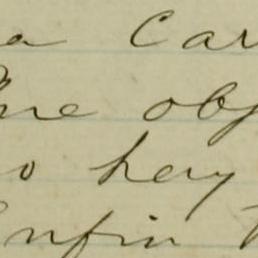 a Car
me obj
o hay
Enfin